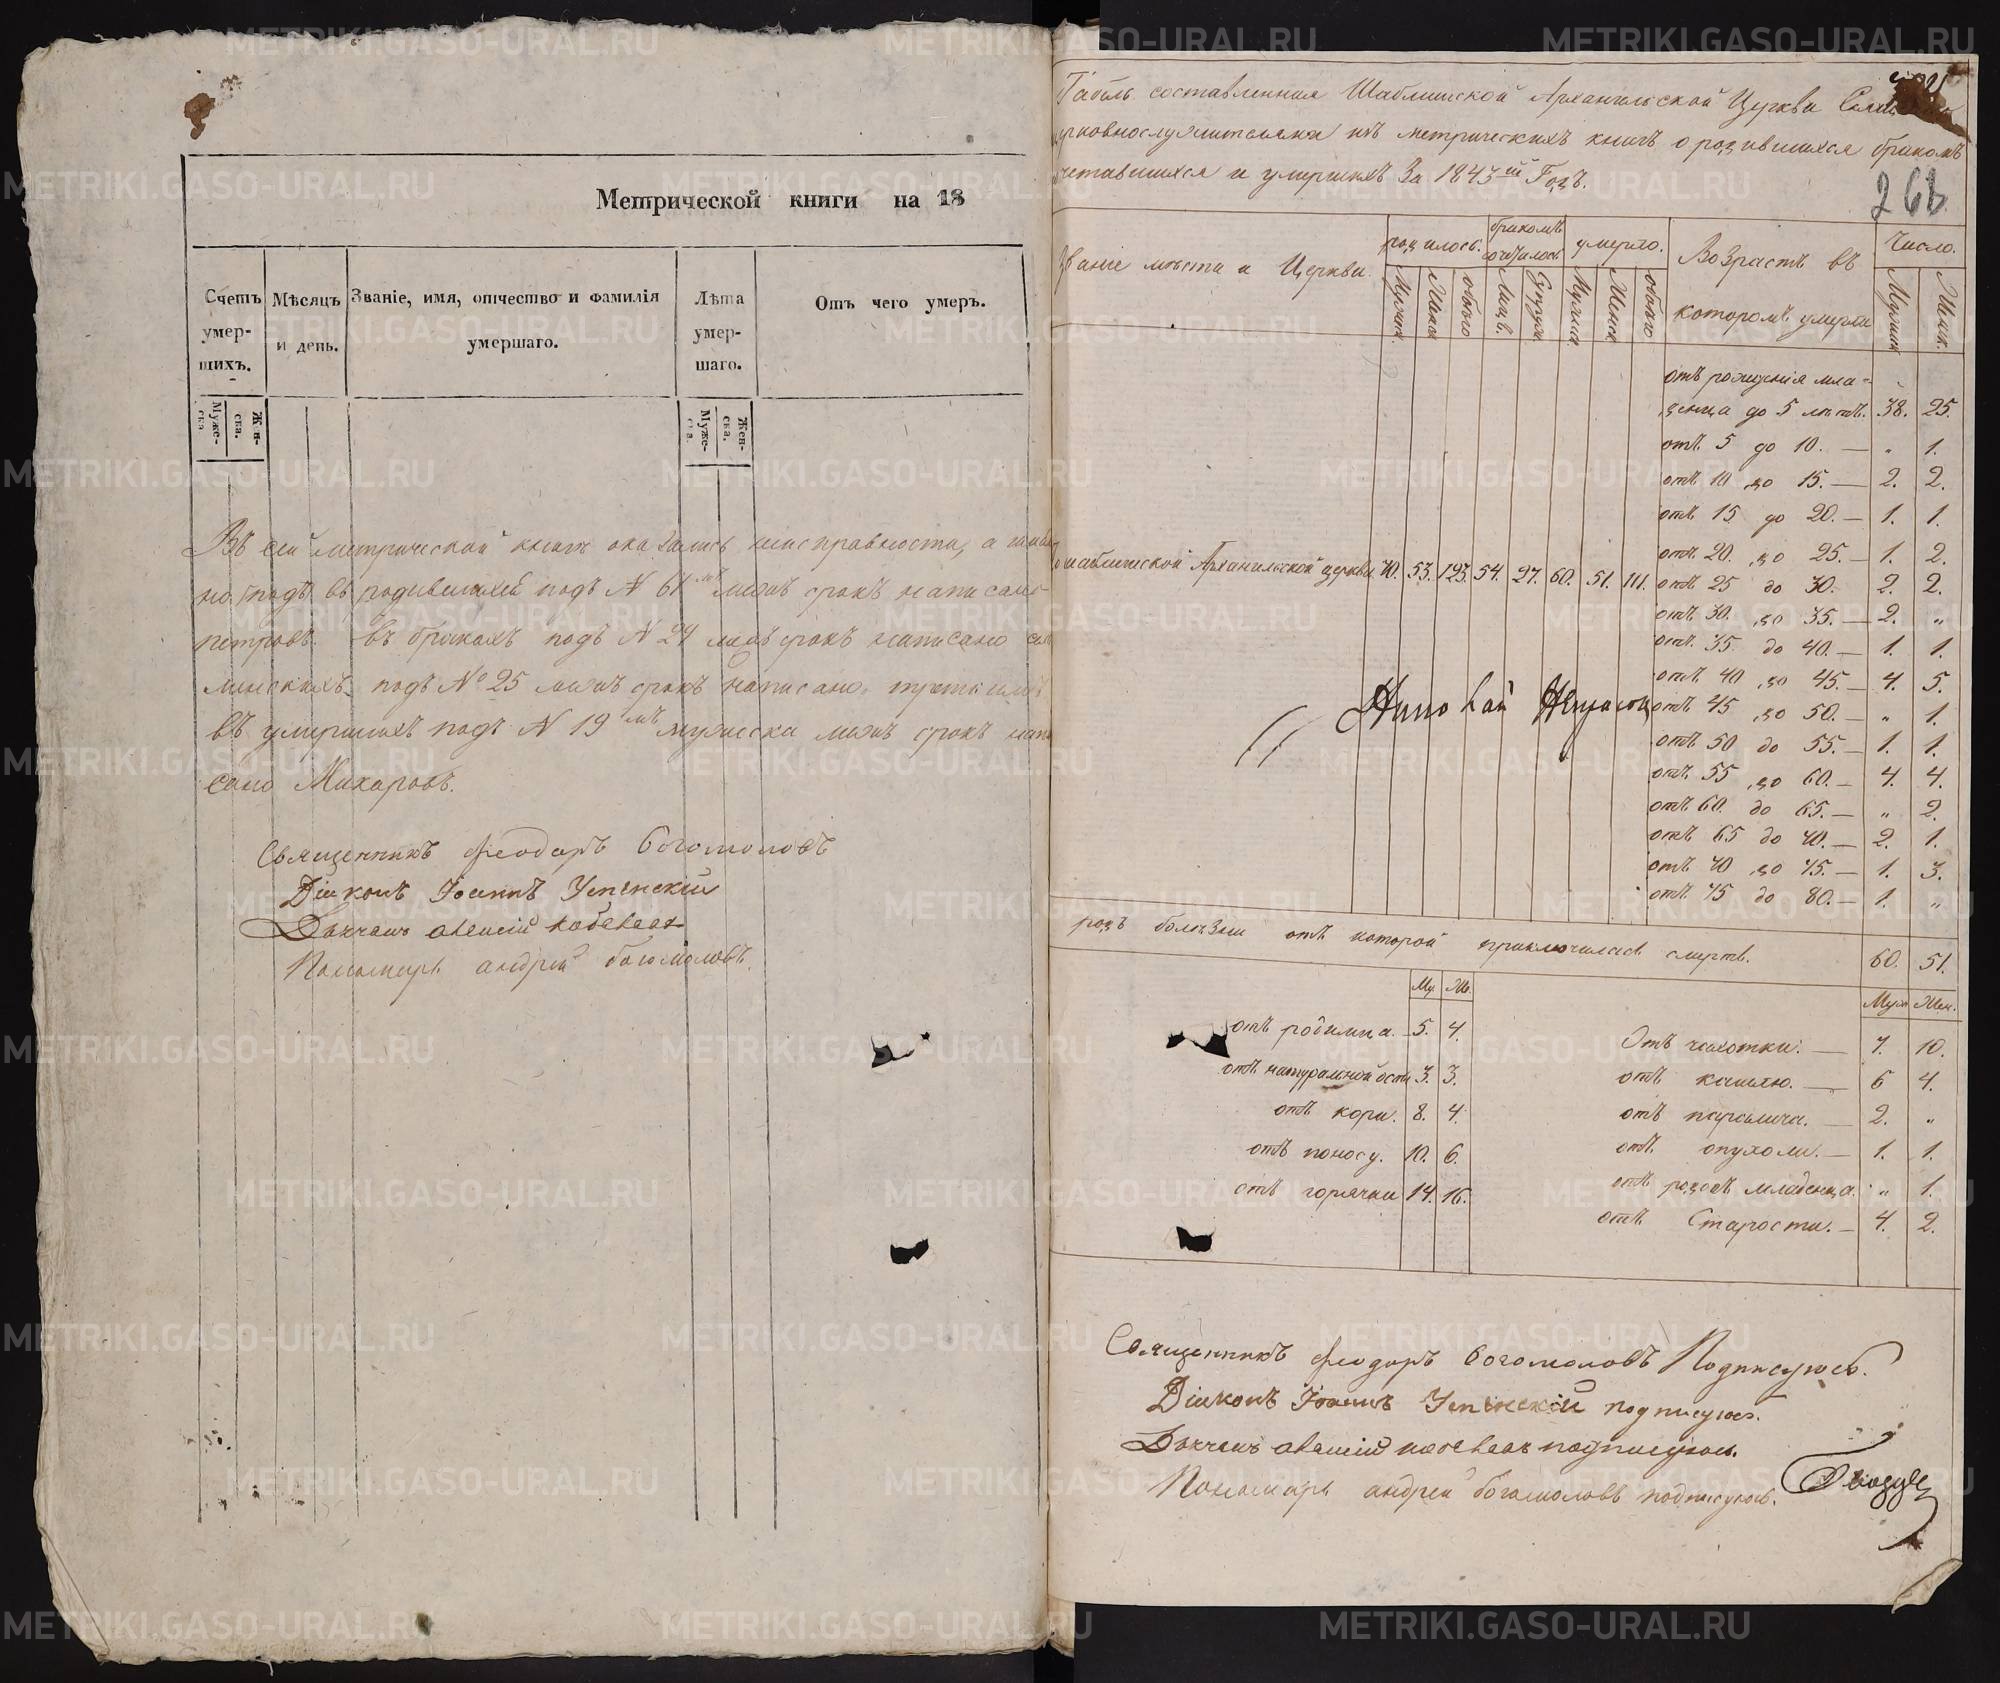 Метрической книги на 18
Счетъ умер- шихъ.
Мѣсяцъ и день.
Званіе, имя, отчество и фамилія умершаго.
Лѣта умер- шаго.
Отъ чего умеръ.
Муже- ска.
Жен- ска.
Муже- ска.
Жен- ска.
Въ сей метрической книгѣ оказались неисправности, а
но подъ въ родившихся подъ N 61 межъ срокъ написано
петровъ. въ бракахъ подъ N 24 межъ срокъ написано
подъ № 25 межъ срокъ написано
въ умершихъ подъ N 19 мужеска межъ срокъ напи
сано Макаровъ.
Священникъ Феодоръ Богомоловъ
Діаконъ Іоаннъ Успенскій
Дьячекъ
Пономарь андрей богомоловъ.
Табель составленная Шаблишской Архангельской Церкви
церковнослужителями изъ метрическихъ книгъ о родившихся бракомъ
сочетавшихся и умершихъ За 1843й Годъ.
268
Званіе мѣста и Церкви.
родилось.
бракомъ сочеталось
умерло.
Возрастъ въ которомъ умерли
Число.
Мужеск.
Женска
обоего
Лицъ.
Супруж
Мужеск
Женск
обоего
Мужеск
Женск.
шаблишской Архангельской церкви 70. 53. 123. 54. 27. 60. 51. 111.
отъ рожденія мла-
денца до 5 лѣтъ. 38. 25.
отъ 5 до 10. — „ 1.
отъ 10 до 15. — 2. 2.
отъ 15 до 20. — 1. 1.
отъ 20. до 25. — 1. 2.
отъ 25 до 30. 2. 2.
отъ 30. до 35. — 2. „
отъ 35 до 40. — 1. 1.
отъ 40 до 45. — 4. 5.
отъ 45 до 50. — „ 1.
отъ 50 до 55. — 1. 1.
отъ 55 до 60. — 4. 4.
отъ 60. до 65. — „ 2.
отъ 65 до 70. — 2. 1.
отъ 70 до 75. — 1. 3.
отъ 75 до 80. — 1. „
родъ болѣзни отъ которой приключилась смерть. 60. 51.
Му. Же.
отъ родимца. — 5. 4.
отъ натуральной оспы 3. 3.
отъ кори. 8. 4.
отъ поносу. 10. 6.
отъ горячки 14. 16.
Муж Жен.
Отъ чахотки. — 7. 10.
отъ кашлю. — 6 4.
отъ паралича. — 2. „
отъ опухоли. — 1. 1.
отъ родовъ младенца. „ 1.
отъ Старости. — 4. 2.
Священникъ Феодоръ Богомоловъ Подписуюсь.
Діаконъ Іоаннъ Успенскій подписуюсь.
Дьячекъ подписуюсь.
Пономарь андрей богомоловъ подписуюсь.
METRIKI.GASO-URAL.RU